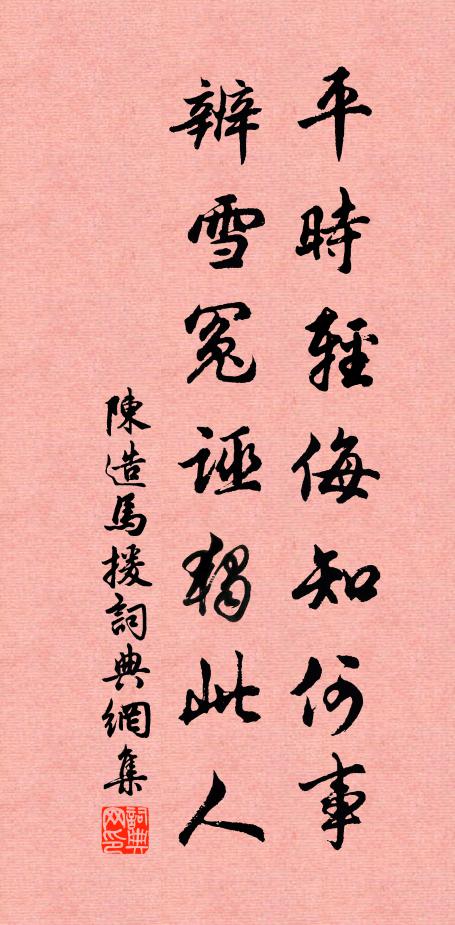 平時輕侮知何事
辨雪冤誣獨此人
陳造馬援詞典網集
詞典网印